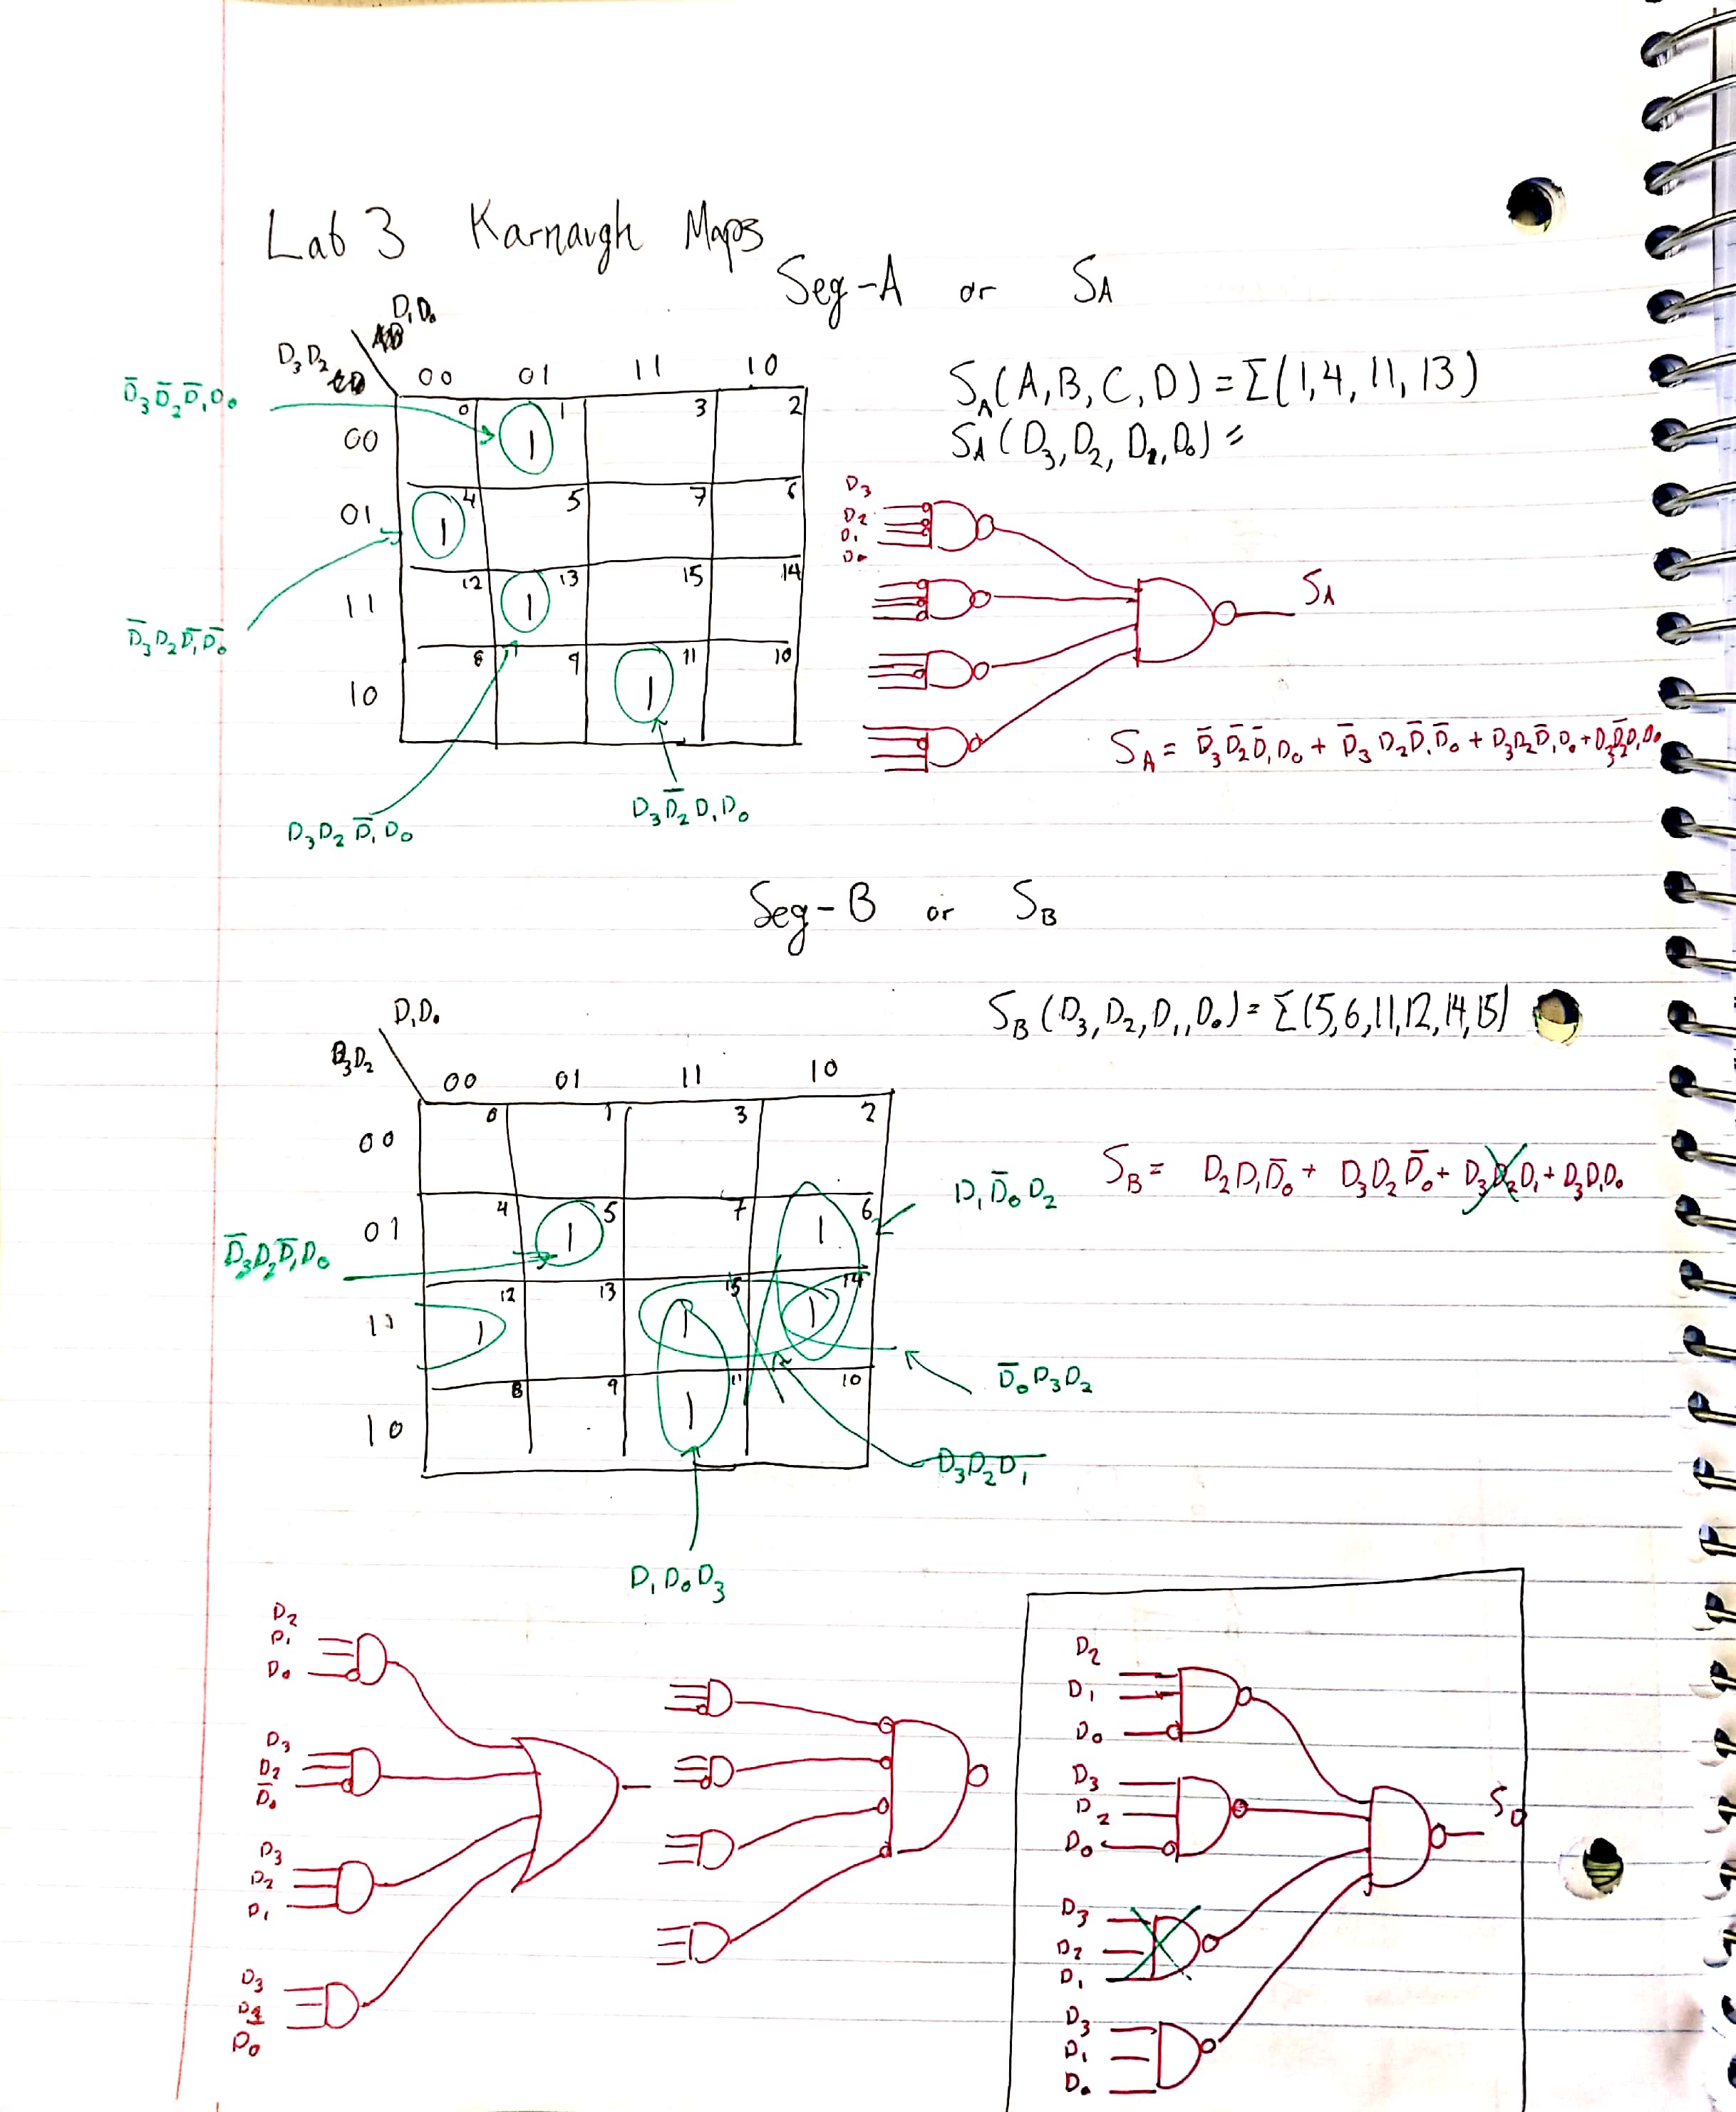 Lab 3 Karnaugh Maps
Seg-A or SA
D1D0
D3D2
00 01 11 10
D̅3D̅2D̅1D0
00
0 1 1 3 2
01
4 1 5 7 6
D̅3D2D̅1D̅0
11
12 13 1 15 14
10
8 9 11 1 10
D3D2D̅1D0
D3D̅2D1D0
SA(A,B,C,D) = Σ(1,4,11,13)
SA(D3,D2,D1,D0) =
D3
D2
D1
D0
SA
SA = D̅3D̅2D̅1D0 + D̅3D2D̅1D̅0 + D3D2D̅1D0 + D3D̅2D1D0
Seg-B or SB
SB(D3,D2,D1,D0) = Σ(5,6,11,12,14,15)
D1D0
D3D2
00 01 11 10
00
0 1 3 2
01
4 5 1 7 6 1
11
12 1 13 15 1 14 1
10
8 9 11 1 10
D̅3D2D̅1D0
D1D̅0D2
D̅0D3D2
D3D2D1
D1D0D3
SB = D2D1D̅0 + D3D2D̅0 + D3D2D1 + D3D1D0
D2
D1
D0
D3
D2
D̅0
D3
D2
D1
D3
D1
D0
D2
D1
D0
D3
D2
D0
D3
D2
D1
D3
D1
D0